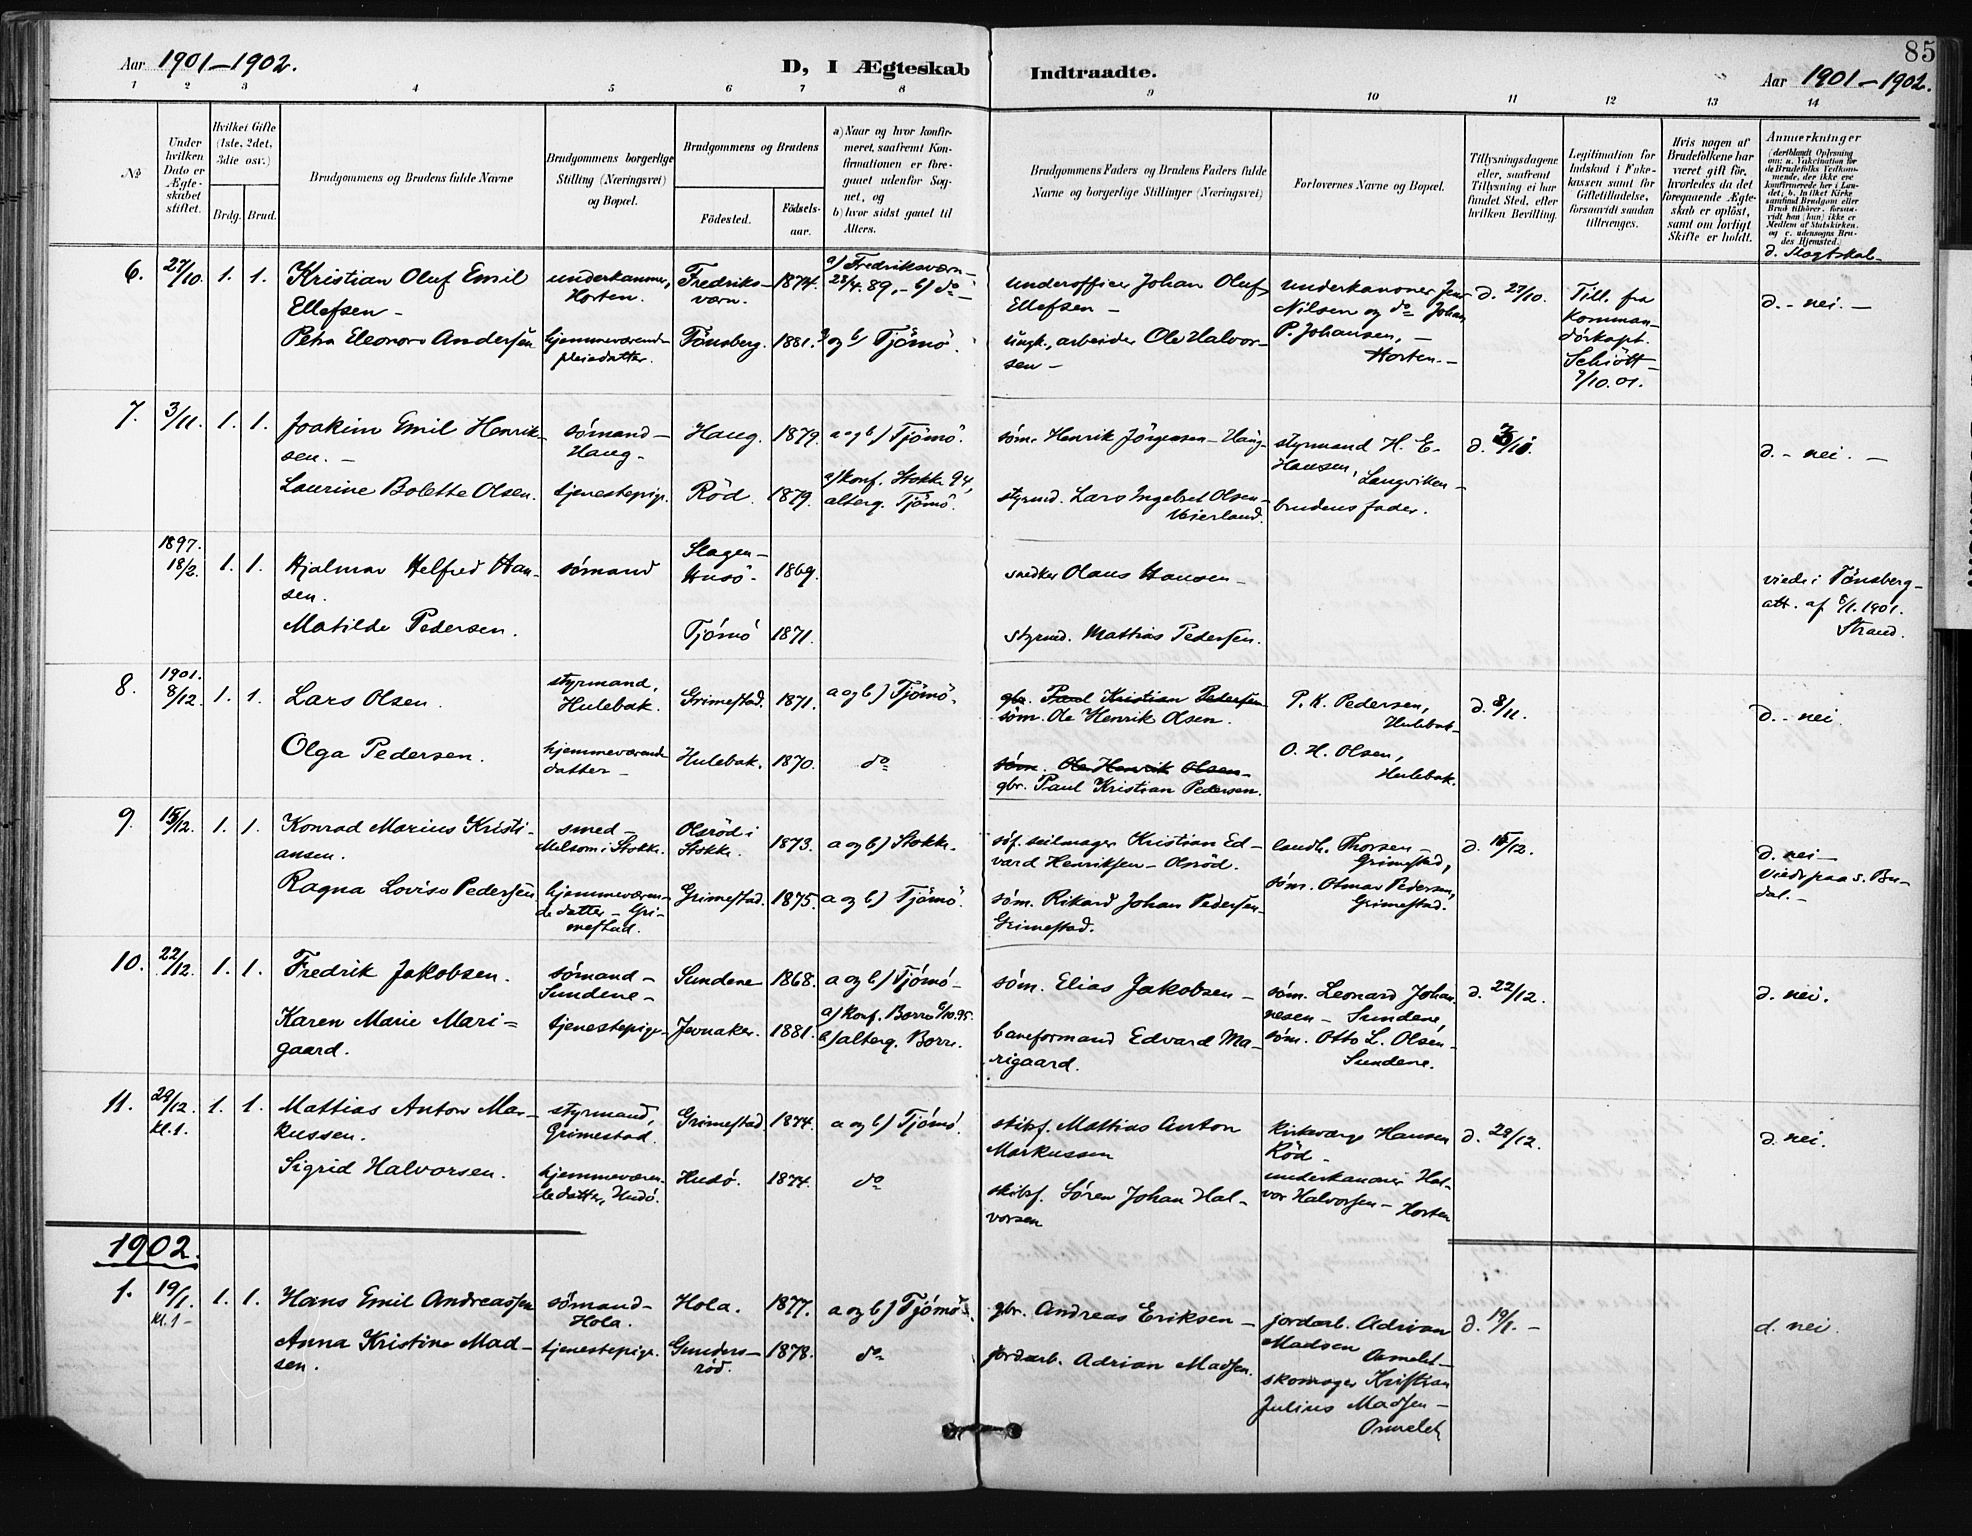 85
Aar 1901–1902.
D, I Ægteskab Indtraadte.
Aar 1901–1902.
1 2 3 4 5 6 7 8 9 10 11 12 13 14
№
Under hvilken Dato er Ægteskabet stiftet.
Hvilket Gifte (1ste, 2det, 3die osv.)
Brdg. Brud.
Brudgommens og Brudens fulde Navne
Brudgommens borgerlige Stilling (Næringsvei) og Bopæl.
Brudgommens og Brudens
Födested.
Födsels-aar.
a) Naar og hvor konfirmeret, saafremt Konfirmationen er foregaaet udenfor Sognet, og
b) hvor sidst gaaet til Alters.
Brudgommens Faders og Brudens Faders fulde Navne og borgerlige Stillinger (Næringsvei)
Forlovernes Navne og Bopæl.
Tillysningsdagene eller, saafremt Tillysning ei har fundet Sted, efter hvilken Bevilling.
Legitimation for Indskud i Enkekassen samt for Giftetilladelse, forsaavidt saadan tiltrænges.
Hvis nogen af Brudefolkene har været gift för, hvorledes da det foregaaende Ægteskab er oplöst, samt om lovligt Skifte er holdt.
Anmerkninger
d. Slægtskab
6. 27/10. 1. 1. Kristian Oluf Emil Ellefsen –
underkanoner, Horten.
Fredriksværn. 1874.
a) Fredriksværn – 28/4. 89, – b) do –
underofficer Johan Oluf Ellefsen –
underkanoner Jens Nilsen og do Johan P. Johansen, – Horten. –
d. 27/10.
Till. fra Kommandörkapt. Schiött – 9/10. 01.
d. – nei. –
Petra Eleonore Andersen
hjemmeværende pleiedatter.
Tönsberg. 1881. a og b) Tjömö.
ungk., arbeider Ole Halvorsen –
7. 3/11. 1. 1. Joakim Emil Henriksen. –
sömand – Haug.
Haug. 1879. a og b) Tjömö.
söm. Henrik Jörgensen – Haug
styrmand H. E. Hansen, Langviken –
d. – nei. –
Laurine Bolette Olsen. tjenestepige. Röd. 1879.
a) konf. Stokke 94, alterg. Tjömö.
styrmd. Lars Ingebret Olsen – Veierland.
brudens fader.
1897. 18/2. 1. 1. Hjalmar Helfred Hansen.
sömand
Slagen – Husö. 1869.
snedker Olaus Hansen –
viede i Tönsberg – att. af 5/1. 1901. Strand.
Matilde Pedersen.
Tjömö 1871.
styrmd. Mattias Pedersen.
8. 1901. 8/12. 1. 1. Lars Olsen.
styrmand, Hulebak.
Grimestad. 1871. a og b) Tjömö.
gbr. Paul Kristian Pedersen
söm. Ole Henrik Olsen.
P. K. Pedersen, Hulebak –
d. 8/11.
d. – nei.
Olga Pedersen.
hjemmeværende datter –
Hulebak. 1870. do
söm. Ole Henrik Olsen –
gbr. Paul Kristian Pedersen.
O. H. Olsen, Hulebak.
9. 15/12. 1. 1. Konrad Marius Kristiansen.
smed – Melsom i Stokke.
Olsröd i Stokke. 1873. a og b) Stokke.
söf. seilmager Kristian Edvard Henriksen – Olsröd.
landh. Thorsen – Grimestad,
d. 15/12.
d. nei –
Ragna Lovise Pedersen
hjemmeværende datter – Grimestad.
Grimestad. 1875. a og b) Tjömö.
söm. Rikard Johan Pedersen – Grimestad.
söm. Otmar Pedersen, Grimestad.
10. 22/12. 1. 1. Fredrik Jakobsen.
sömand – Sundene –
Sundene 1868. a og b) Tjömö –
söm. Elias Jakobsen –
söm. Leonard Johannesen – Sundene,
d. 22/12.
d. nei.
Karen Marie Marigaard.
tjenestepige – Jevnaker. 1881.
a) konf. Borre 6/10. 95. b) alterg. Borre.
baneformand Edvard Marigaard.
söm. Otto L. Olsen – Sundene.
11. 29/12. kl. 1. 1. 1. Mattias Anton Markussen.
styrmand, Grimestad.
Grimestad. 1874. a og b) Tjömö.
skibsf. Mattias Anton Markussen
kirkeværge Hansen Röd –
d. 29/12.
d. nei.
Sigrid Halvorsen.
hjemmeværende datter, Husö.
Husö. 1874. do
skibsf. Sören Johan Halvorsen
underkanoner Halvor Halvorsen – Horten
1902.
1. 19/1. kl. 1 – 1. 1. Hans Emil Andreassen
sömand – Hola.
Hola. 1877. a og b) Tjömö.
gbr. Andreas Eriksen –
jordarb. Adrian Madsen Ormelet –
d. 19/1. –
d. nei.
Anna Kristine Madsen.
tjenestepige. Gundersröd. 1878. do
jordarb. Adrian Madsen.
skomager Kristian Julius Madsen – Ormelet